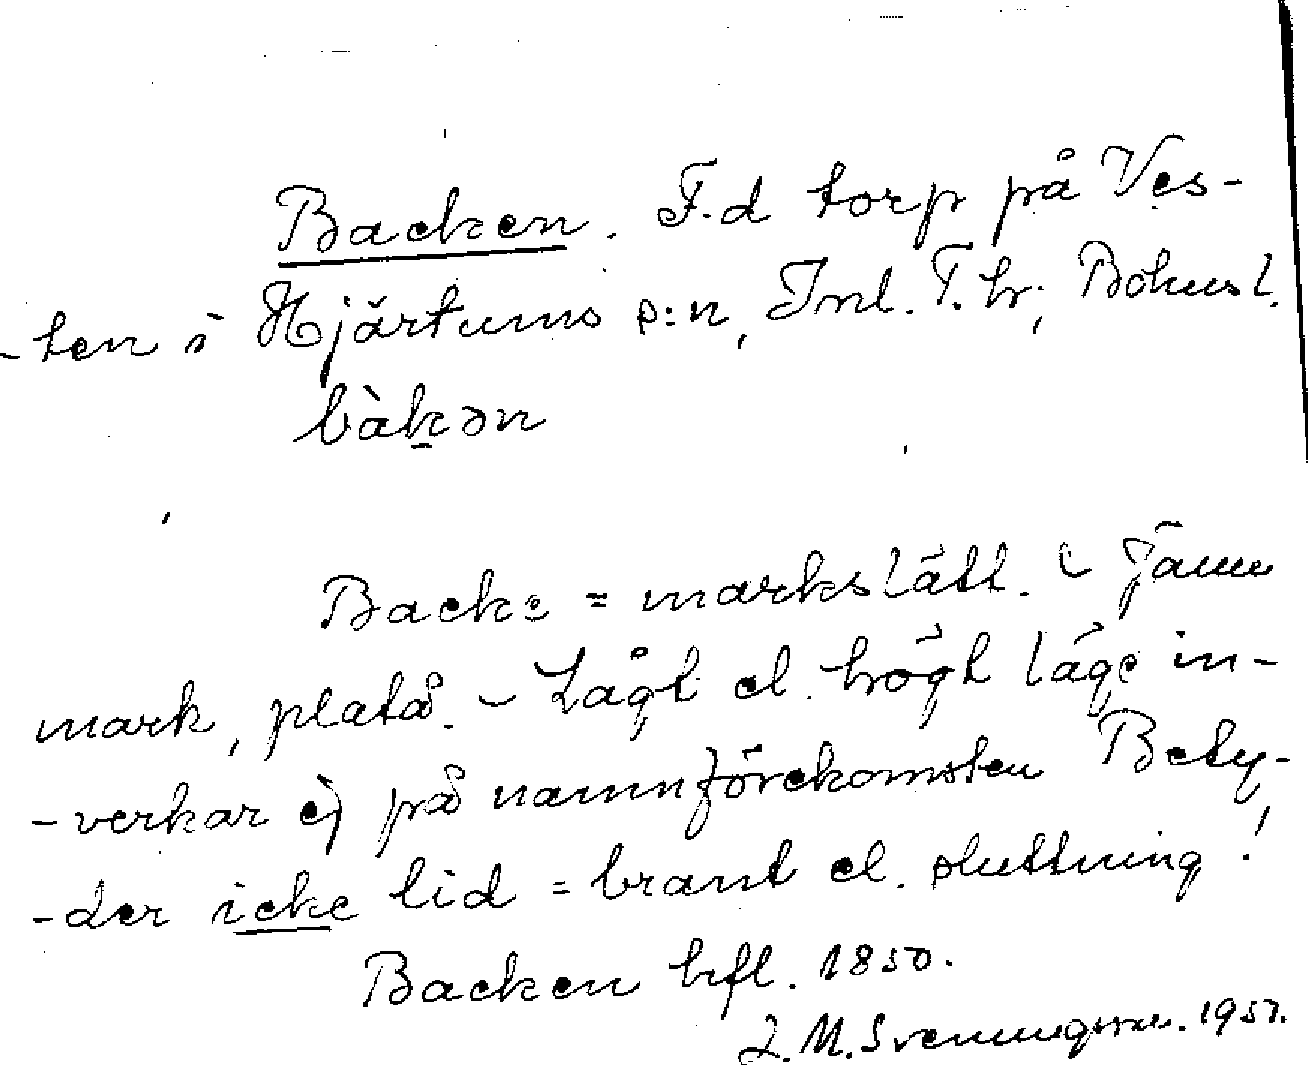 Backen. F.d torp på Ves-
-ten i Hjärtums s:n, Inl. T. hr; Bohusl.
bàkən
Backe = markslätt. - Jämn
mark, platå. - Lågt el. högt läge in-
-verkar ej på namnförekomsten Bety-
-der icke lid = brant el. sluttning!
Backen hfl. 1850.
J. M. Svenningson. 1957.